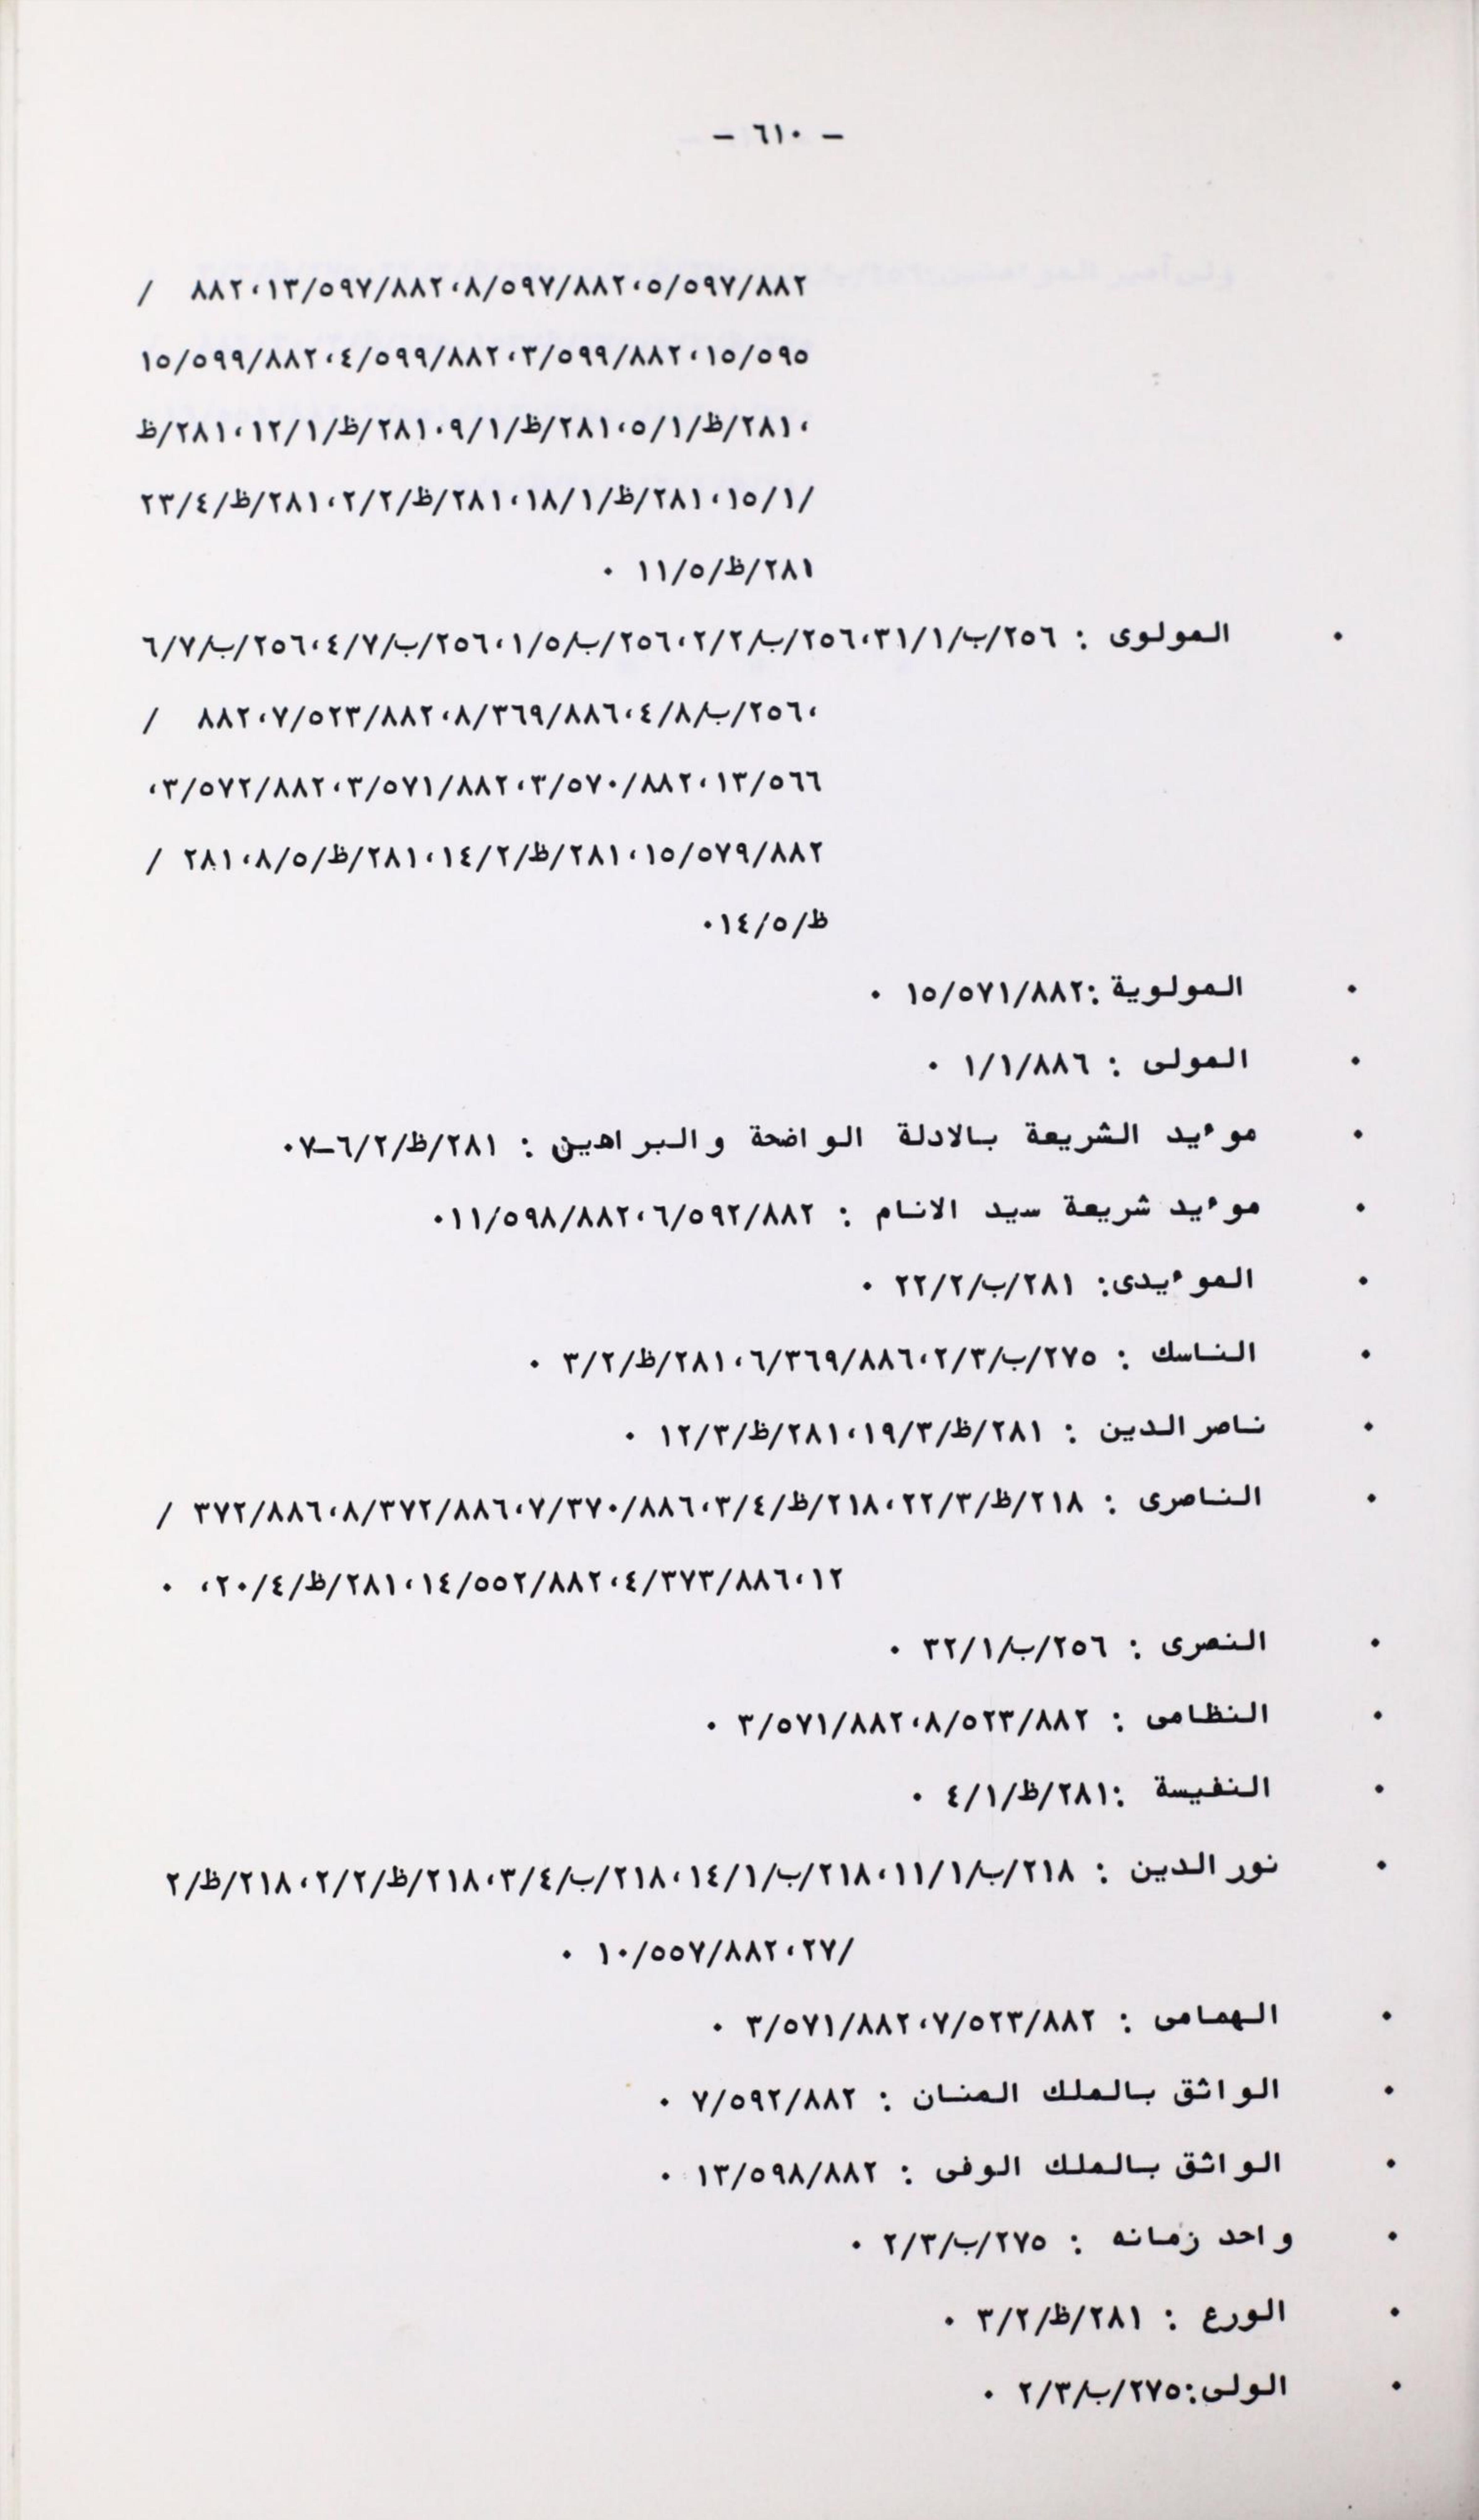 - ٦١٠ -
٨٨٢/٥٩٧/٥، ٨٨٢/٥٩٧/٨، ٨٨٢/٥٩٧/١٣، ٨٨٢ /
٥٩٥/١٥، ٨٨٢/٥٩٩/٣، ٨٨٢/٥٩٩/٤، ٨٨٢/٥٩٩/١٥
، ٢٨١/ظ/١/٥، ٢٨١/ظ/١/٩، ٢٨١/ظ/١/١٢، ٢٨١/ظ
/١/١٥، ٢٨١/ظ/١/١٨، ٢٨١/ظ/٢/٢، ٢٨١/ظ/٤/٢٣
٢٨١/ظ/٥/١١ .
. المولوى : ٢٥٦/ب/١/٣١، ٢٥٦/ب/٢/٢، ٢٥٦/ب/٥/١، ٢٥٦/ب/٧/٤، ٢٥٦/ب/٧/٦
، ٢٥٦/ب/٨/٤، ٨٨٦/٣٦٩/٨، ٨٨٢/٥٢٣/٧، ٨٨٢ /
٥٦٦/١٣، ٨٨٢/٥٧٠/٣، ٨٨٢/٥٧١/٣، ٨٨٢/٥٧٢/٣،
٨٨٢/٥٧٩/١٥، ٢٨١/ظ/٢/١٤، ٢٨١/ظ/٥/٨، ٢٨١ /
ظ/٥/١٤.
. المولوية :٨٨٢/٥٧١/١٥ .
. المولى : ٨٨٦/١/١ .
. موءيد الشريعة بالادلة الواضحة والبراهين : ٢٨١/ظ/٢/٦-٧.
. موءيد شريعة سيد الانام : ٨٨٢/٥٩٢/٦، ٨٨٢/٥٩٨/١١.
. الموءيدى: ٢٨١/ب/٢/٢٢ .
. الناسك : ٢٧٥/ب/٣/٢، ٨٨٦/٣٦٩/٦، ٢٨١/ظ/٢/٣ .
. ناصر الدين : ٢٨١/ظ/٣/١٩، ٢٨١/ظ/٣/١٢ .
. الناصرى : ٢١٨/ظ/٣/٢٢، ٢١٨/ظ/٤/٣، ٨٨٦/٣٧٠/٧، ٨٨٦/٣٧٢/٨، ٨٨٦/٣٧٢ /
١٢، ٨٨٦/٣٧٣/٤، ٨٨٢/٥٥٢/١٤، ٢٨١/ظ/٤/٢٠، .
. النصرى : ٢٥٦/ب/١/٣٢ .
. النظامى : ٨٨٢/٥٢٣/٨، ٨٨٢/٥٧١/٣ .
. النفيسة :٢٨١/ظ/١/٤ .
. نور الدين : ٢١٨/ب/١/١١، ٢١٨/ب/١/١٤، ٢١٨/ب/٤/٣، ٢١٨/ظ/٢/٢، ٢١٨/ظ/٢
/٢٧، ٨٨٢/٥٥٧/١٠ .
. الهمامى : ٨٨٢/٥٢٣/٧، ٨٨٢/٥٧١/٣ .
. الواثق بالملك المنان : ٨٨٢/٥٩٢/٧ .
. الواثق بالملك الوفى : ٨٨٢/٥٩٨/١٣ .
. واحد زمانه : ٢٧٥/ب/٣/٢ .
. الورع : ٢٨١/ظ/٢/٣ .
. الولى:٢٧٥/ب/٣/٢ .